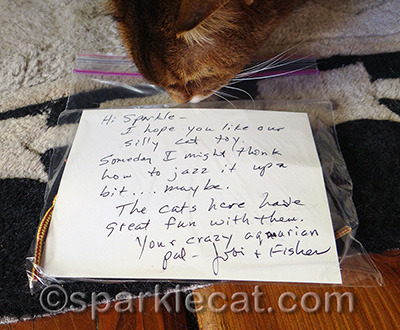 Hi Sparkle -
I hope you like our
silly cat toy.
Someday I might think
how to jazz it up a
bit... maybe.
The cats here have
great fun with them.
Your crazy aquarian
pal - Jori & Fisher
©sparklecat.com